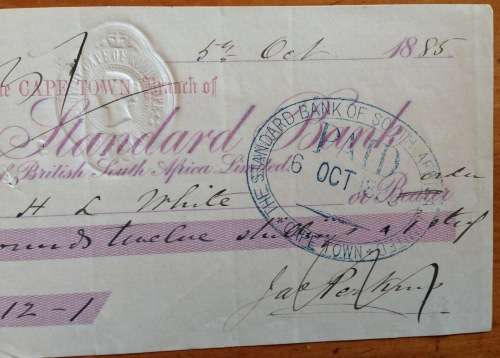 CAPE OF GOOD HOPE
5th Oct 1885
the CAPE TOWN Branch of
Standard Bank
British South Africa Limited
H L White or Bearer order
ounds twelve shillings &
12-1
THE STANDARD BANK OF SOUTH
PAID
6 OCT
CAPE TOWN
Jas Perkins